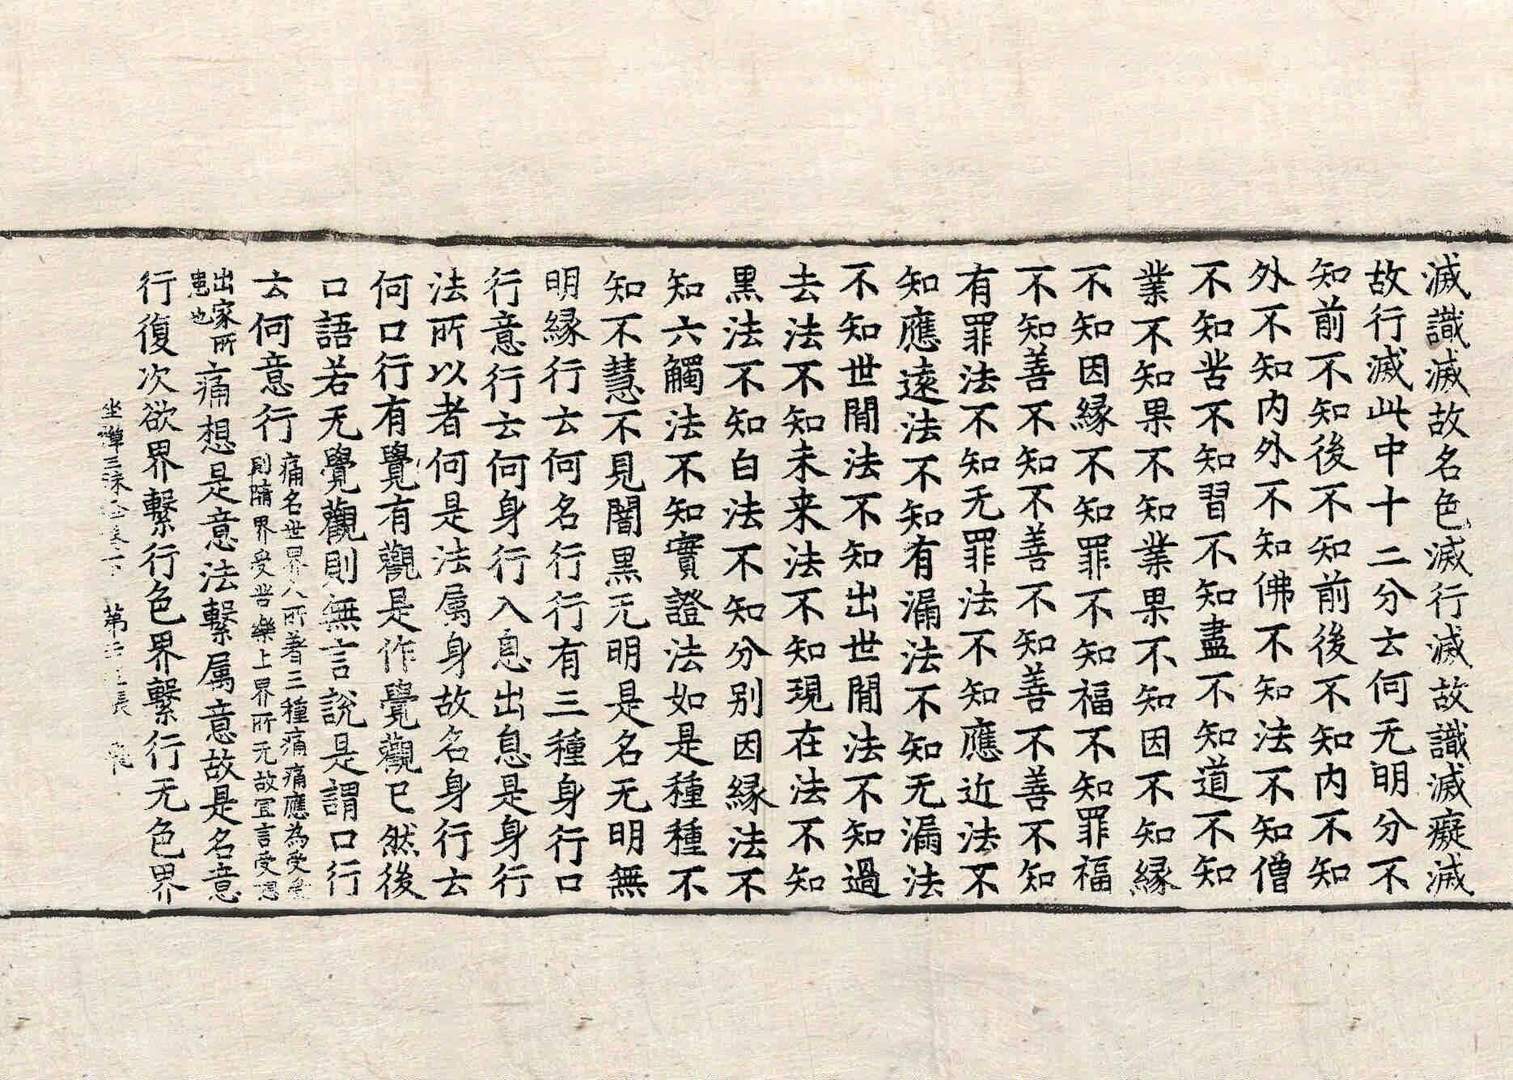 滅識滅故名色滅行滅故識滅癡滅
故行滅此中十二分云何无明分不
知前不知後不知前後不知內不知
外不知內外不知佛不知法不知僧
不知苦不知習不知盡不知道不知
業不知果不知業果不知因不知緣
不知因緣不知罪不知福不知罪福
不知善不知不善不知善不善不知
有罪法不知无罪法不知應近法不
知應遠法不知有漏法不知无漏法
不知世間法不知出世間法不知過
去法不知未来法不知現在法不知
黑法不知白法不知分别因緣法不
知六觸法不知實證法如是種種不
知不慧不見闇黑无明是名无明無
明緣行云何名行行有三種身行口
行意行云何身行入息出息是身行
法所以者何是法属身故名身行云
何口行有覺有觀是作覺觀已然後
口語若无覺觀則無言說是謂口行
云何意行痛名世界人所著三種痛痛應為受
則隨界受苦樂上界所无故宜言受
出家所
患也
痛想是意法繫属意故是名意
行復次欲界繫行色界繫行无色界
坐禪三昧 卷下 第 張